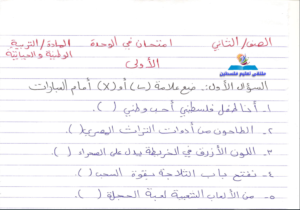 الصف/ الثاني امتحان في الوحدة المادة/ التربية
الأولى الوطنية والحياتية
ملتقى تعليم فلسطين
السؤال الأول: ضع علامة (✓) أو (X) أمام العبارات
١- أنا طفل فلسطيني أحب وطني ( ).
٢- الطاحون من أدوات التراث ( ).
٣- اللون الأزرق في الخريطة يدل على الصحراء ( )
٤- نفتح باب الثلاجة بقوة ( ).
٥- من الألعاب الشعبية لعبة الحجلة ( ).